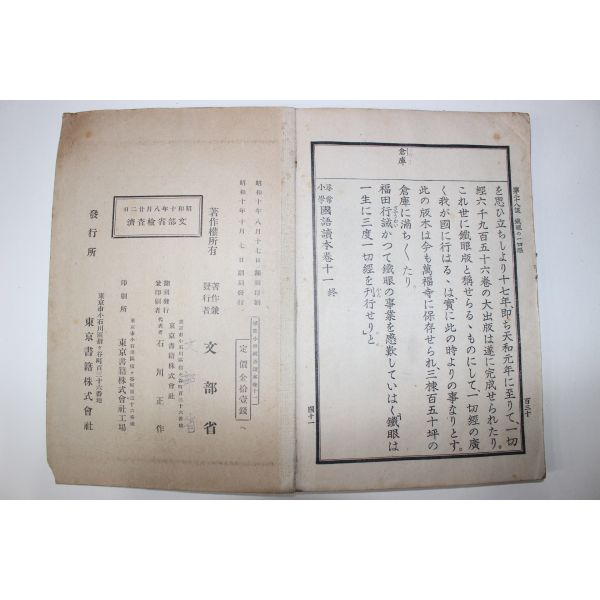 第二十八課 鐵眼の一切經
を思ひ立ちしより十七年、即ち天和元年に至りて、一切
經六千九百五十六卷の大出版は遂に完成せられたり。
これ世に鐵眼版と稱せらるゝものにして、一切經の廣
く我が國に行はるゝは實に此の時よりの事なりとす。
此の版木は今も萬福寺に保存せられ、三棟百五十坪の
倉庫に滿ち〱たり。
福田行誡かつて鐵眼の事業を感歎していはく、「鐵眼は
一生に三度一切經を刊行せり」と。
倉庫
尋常小學國語讀本卷十一 終
百三十
國十一
昭和十年八月十七日飜刻印刷
昭和十年十月七日飜刻發行
定價金拾壹錢
著作權所有
著作兼發行者 文部省
飜刻發行兼印刷者
東京市小石川區
東京書籍株式會社
代表者 石川正作
印刷所
東京書籍株式會社工場
昭和十年八月廿二日
文部省檢査濟
發行所
東京市小石川區
東京書籍株式會社